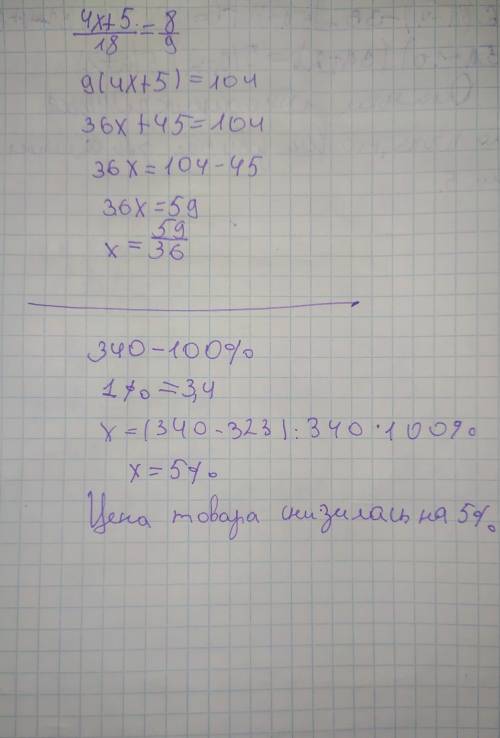 4x+5/18 = 8/9
9(4x+5)=104
36x+45=104
36x=104-45
36x=59
x=59/36
340-100%
1%=3,4
x=(340-323):340·100%
x=5%
Цена товара снизилась на 5%